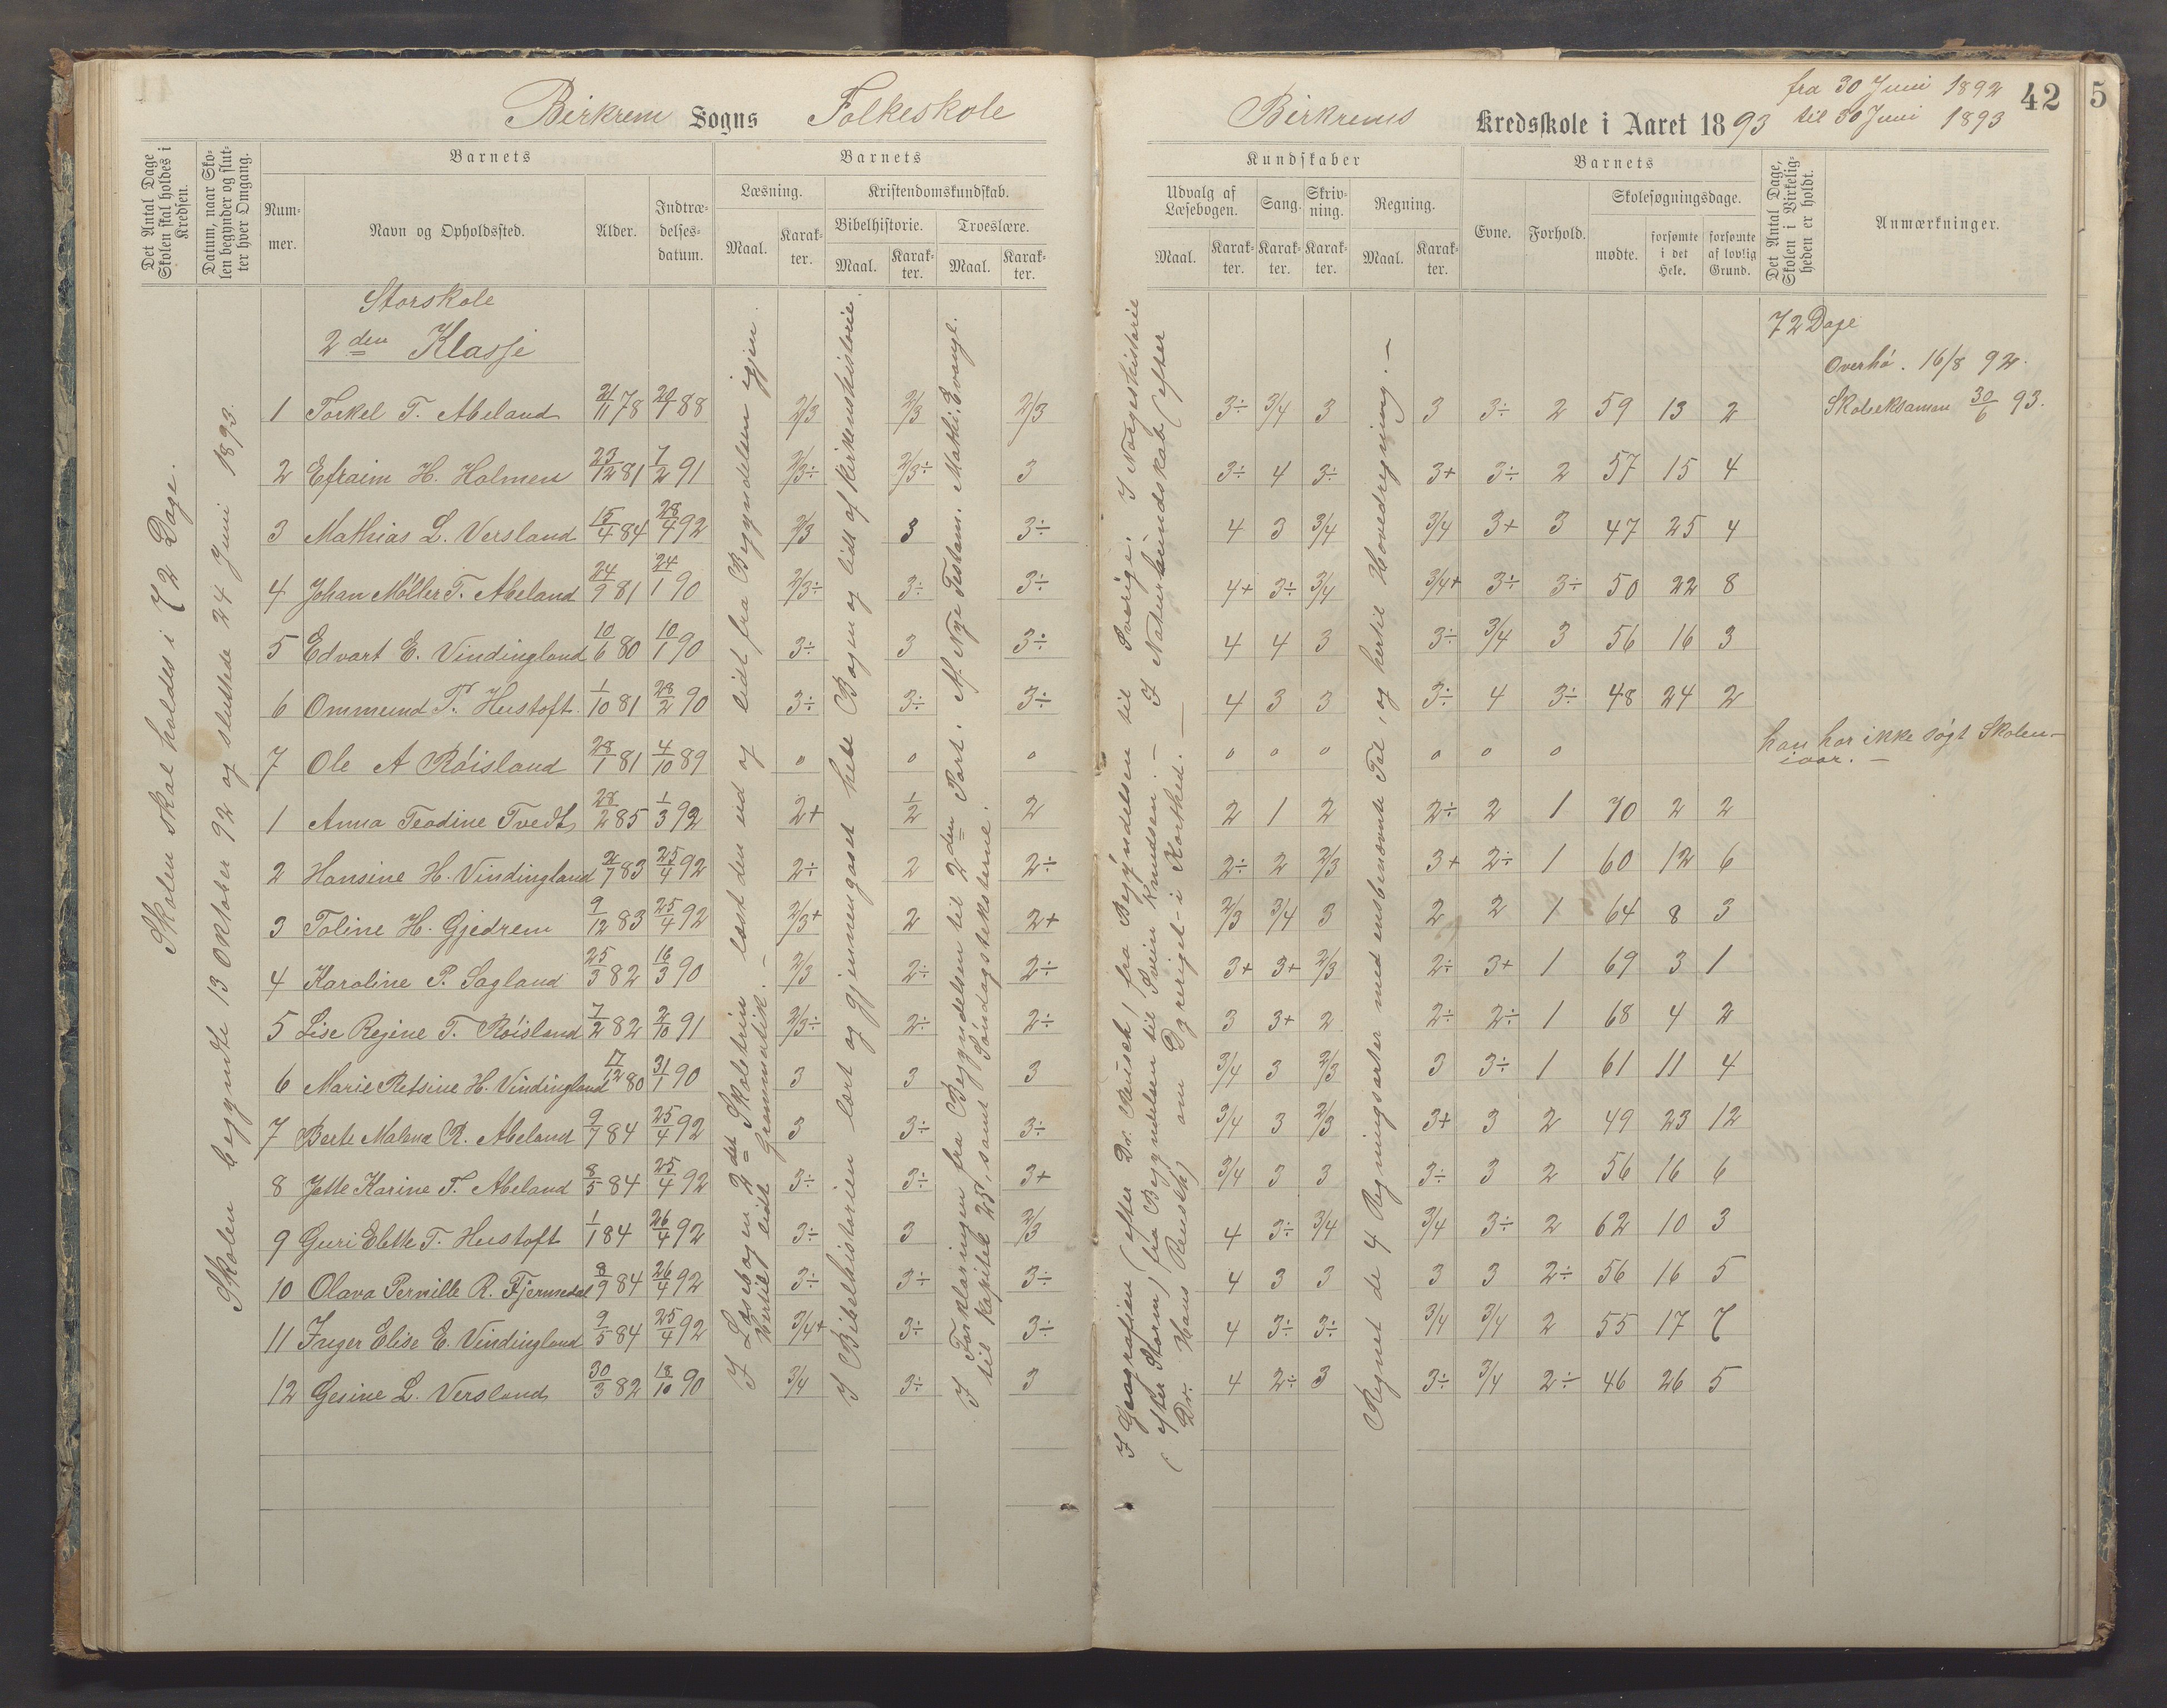 Birkrem Sogns Folkeskole
Birkrems Kredsskole i Aaret 1893
fra 30 Juni 1892
til 30 Juni 1893
42
5
Det Antal Dage Skolen skal holdes i Kredsen.
Datum, naar Skolen begynder og slutter hver Omgang.
Barnets
Nummer.
Navn og Opholdssted.
Alder.
Indtrædelsesdatum.
Barnets
Læsning.
Maal.
Karakter.
Kristendomskundskab.
Bibelhistorie.
Maal.
Karakter.
Troeslære.
Maal.
Karakter.
Kundskaber
Udvalg af Læsebogen.
Maal.
Karakter.
Sang.
Karakter.
Skrivning.
Karakter.
Regning.
Maal.
Karakter.
Barnets
Evne.
Forhold.
Skolesøgningsdage.
mødte.
forsømte i det Hele.
forsømte af lovlig Grund.
Det Antal Dage, Skolen i Virkeligheden er holdt.
Anmærkninger.
Skolen skal holdes i 72 Dage.
Skolen begyndte 13 Oktober 92 og sluttede 24 Juni 1893.
Storskole
2den Klasse
72 Dage
Overhø. 16/8 92.
Skoleeksamen 30/6 93.
1 Torkel T. Abeland 21/11 78 20/1 88 2/3 2/3 2/3 3÷ 3/4 3 3 3÷ 2 59 13 2
2 Efraim H. Holmen 23/12 81 7/2 91 2/3÷ 2/3÷ 3 3÷ 4 3÷ 3+ 3÷ 2 57 15 4
3 Mathias L. Versland 15/4 84 28/4 92 2/3 3 3÷ 4 3 3/4 3/4 3+ 3 47 25 4
4 Johan Møller T. Abeland 24/9 81 24/1 90 2/3÷ 3÷ 3÷ 4+ 3÷ 3/4 3/4+ 3÷ 3÷ 50 22 8
5 Edvart E. Vindingland 10/6 80 10/1 90 3÷ 3 3÷ 4 4 3 3÷ 3/4 3 56 16 3
6 Ommund T. Hustoft 1/10 81 28/2 90 3÷ 3÷ 3÷ 4 3 3 3÷ 4 3÷ 48 24 2
7 Ole A Røisland 28/1 81 4/10 89 0 0 0 0 0 0 0 0 0 han har ikke søgt Skolen iaar.
1 Anna Teodine Tvedt 28/2 85 1/3 92 2+ 1/2 2 2 1 2 2÷ 2 1 70 2 2
2 Hansine H. Vindingland 2/7 83 25/4 92 2÷ 2 2÷ 2÷ 2 2/3 3+ 2÷ 1 60 12 6
3 Toline H. Gjedrem 9/12 83 25/4 92 2/3+ 2 2+ 2/3 3/4 3 2 2 1 64 8 3
4 Karoline P. Sagland 25/3 82 16/3 90 2/3 2÷ 2÷ 3+ 3+ 2/3 2÷ 3+ 1 69 3 1
5 Lise Regine T. Røisland 7/2 82 2/10 91 2/3÷ 2÷ 2÷ 3 3+ 2 2÷ 2÷ 1 68 4 2
6 Marie Retsine H. Vindingland 17/12 80 31/1 90 3 3 3 3/4 3 2/3 3 3÷ 1 61 11 4
7 Berte Malena R. Abeland 9/7 84 25/4 92 3 3÷ 3÷ 3/4 3 2/3 3+ 3 2 49 23 12
8 Jette Karine T. Abeland 8/5 84 25/4 92 3÷ 3÷ 3+ 3/4 3 3 3÷ 3 2 56 16 6
9 Guri Elette T. Hustoft 1/1 84 26/4 92 3÷ 3 2/3 4 3÷ 3/4 3/4 3÷ 2 62 10 3
10 Olava Pernille R. Fjermedal 8/9 84 26/4 92 3÷ 3÷ 3÷ 4 3 3 3 3 2÷ 56 16 5
11 Inger Elise E. Vindingland 9/5 84 25/4 92 3/4+ 3÷ 3÷ 4 3÷ 3÷ 3/4 3/4 2 55 17 7
12 Gesine L. Versland 30/3 82 18/10 90 3/4 3÷ 3 4 2÷ 3 3÷ 3/4 2÷ 46 26 5
I Læsebogen 2det Skoletrin læst den ud og lidt fra Begyndelsen igjen.
Hertil lidt Grammatik.
I Bibelhistorien lært og gjennemgaaet hele Bogen og lidt af Kirkenshistorie.
I Forklaringen fra Begyndelsen til 2den Part. Af Nye Testam. Mathi. Evangl.
til Kapitel 25, samt Søndagsteksterne.
I Geografien (efter Dr. Reusch) fra Begyndelsen til Sverige. I Norgeshistorie
(efter Storm) fra Begyndelsen til Svein Knudsen. I Naturkundskab (efter
Dr. Hans Reusch) om Dyreriget i Korthed.
Regnet de 4 Regningsarter med ensbenævnte Tal, og hertil Hovedregning.